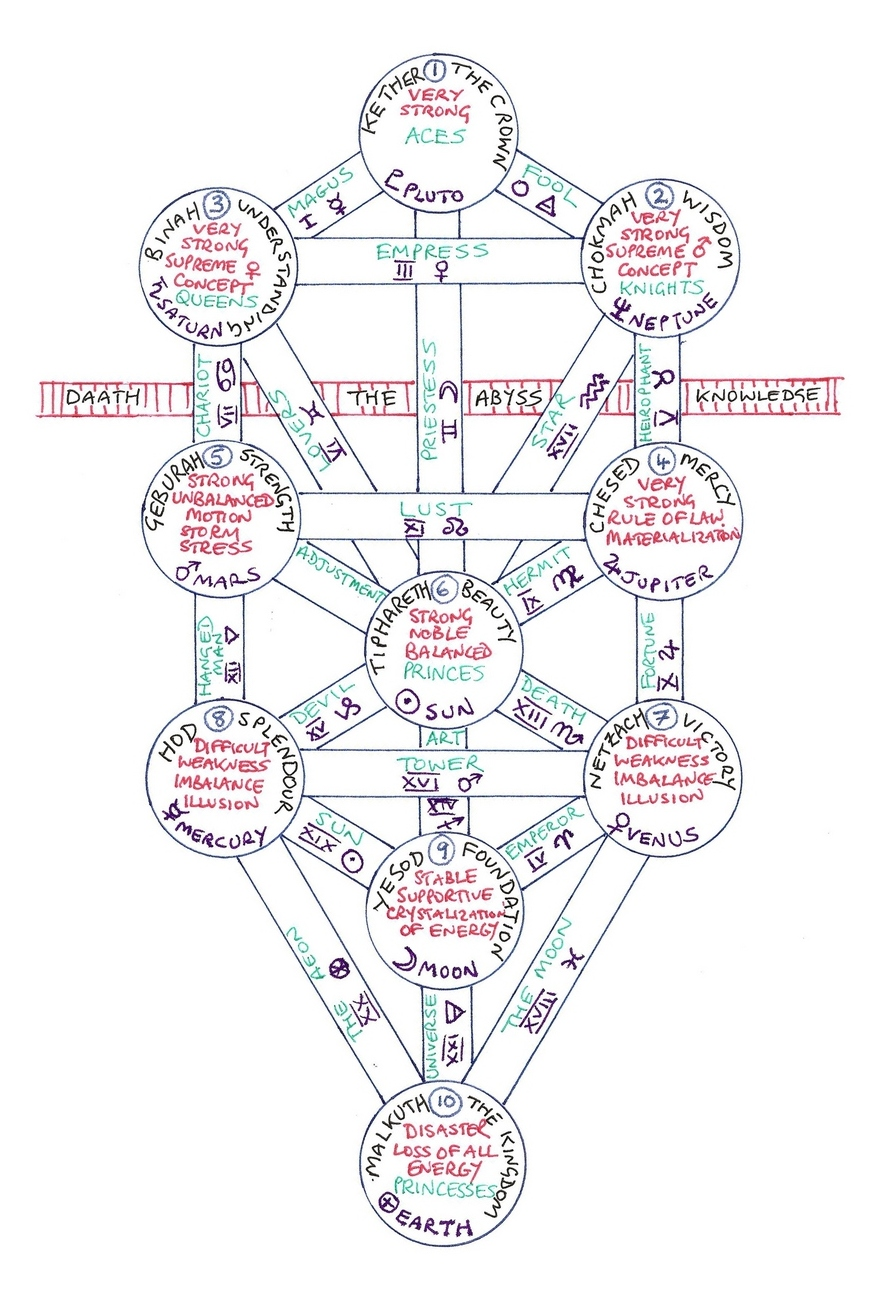 KETHER 1 THE CROWN
VERY
STRONG
ACES
♇ PLUTO
MAGUS
I ☿
FOOL
O △
BINAH 3 UNDERSTANDING
VERY
STRONG
SUPREME ♀
CONCEPT
QUEENS
♄ SATURN ♄
CHOKMAH 2 WISDOM
VERY
STRONG
SUPREME ♂
CONCEPT
KNIGHTS
♆ NEPTUNE
EMPRESS
III ♀
DAATH THE ABYSS KNOWLEDGE
CHARIOT
VII ♋
LOVERS
VI ♊
PRIESTESS
II ☽
STAR
XVII ♒
HEIROPHANT
V ♉
GEBURAH 5 STRENGTH
STRONG
UNBALANCED
MOTION
STORM
STRESS
♂ MARS
CHESED 4 MERCY
VERY
STRONG
RULE OF LAW
MATERIALIZATION
♃ JUPITER
LUST
XI ♌
ADJUSTMENT
HERMIT
IX ♍
TIPHARETH 6 BEAUTY
STRONG
NOBLE
BALANCED
PRINCES
☉ SUN
HANGED
MAN
XII ▽
FORTUNE
X ♃
DEVIL
XV ♑
DEATH
XIII ♏
HOD 8 SPLENDOUR
DIFFICULT
WEAKNESS
IMBALANCE
ILLUSION
☿ MERCURY
NETZACH 7 VICTORY
DIFFICULT
WEAKNESS
IMBALANCE
ILLUSION
♀ VENUS
ART
TOWER
XVI ♂
XIV
♐
SUN
XIX ☉
EMPEROR
IV ♈
YESOD 9 FOUNDATION
STABLE
SUPPORTIVE
CRYSTALIZATION
OF ENERGY
☽ MOON
THE AEON
XX
UNIVERSE
XXI
THE MOON
XVIII ♓
MALKUTH 10 THE KINGDOM
DISASTER
LOSS OF ALL
ENERGY
PRINCESSES
⊕ EARTH